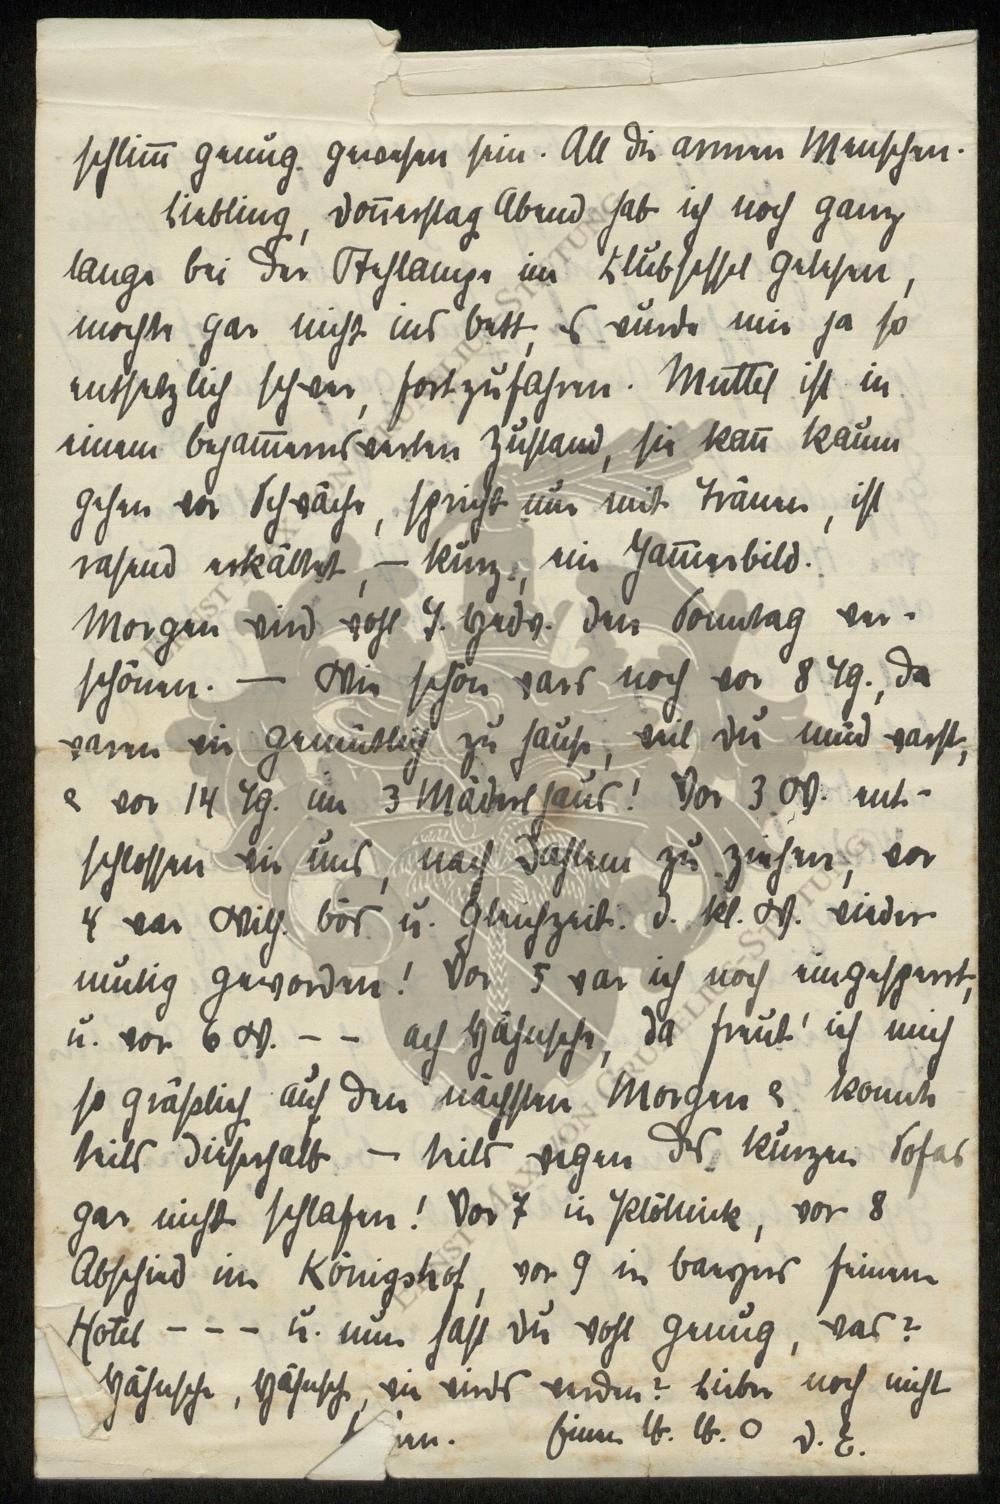 schlim̄ genug gewesen sein. All die armen Menschen.
Liebling, Don̄erstag Abend hab ich noch ganz
lange bei der Stehlampe im Klubsessel gelesen,
mochte gar nicht ins Bett, es wurde mir ja so
entsetzlich schwer, fortzufahren. Muttel ist in
einem bejam̄ernswerten Zustand, sie kan̄ kaum
gehen vor Schwäche, spricht nur mit Tränen, ist
rasend erkältet, — kurz, ein Jam̄erbild.
Morgen wird wohl T. Hedw. den Sonntag ver-
schönen. — Wie schön wars noch vor 8 Tg., da
waren wir gemütlich zu Hause, weil du müd warst,
& vor 14 Tg. im 3 Mäderlhaus! Vor 3 W. ent-
schlossen wir uns, nach Dahlem zu ziehen, vor
4 war Wilh. bös u. gleichzeit. d. kl. W. wieder
mutig geworden! Vor 5 war ich noch eingesperrt,
u. vor 6 W. - - ach Hähnsche, da freut' ich mich
so gräßlich auf den nächsten Morgen & konnte
teils dieserhalb — teils wegen des kurzen Sofas
gar nicht schlafen! Vor 7 in, vor 8
Abschied im Königshof, vor 9 in feinem
Hotel - - - u. nun hast du wohl genug, was?
Hähnsche, Hähnsche, wie wirds werden? Lieber noch nicht
Einen lb. lb. O d. E.